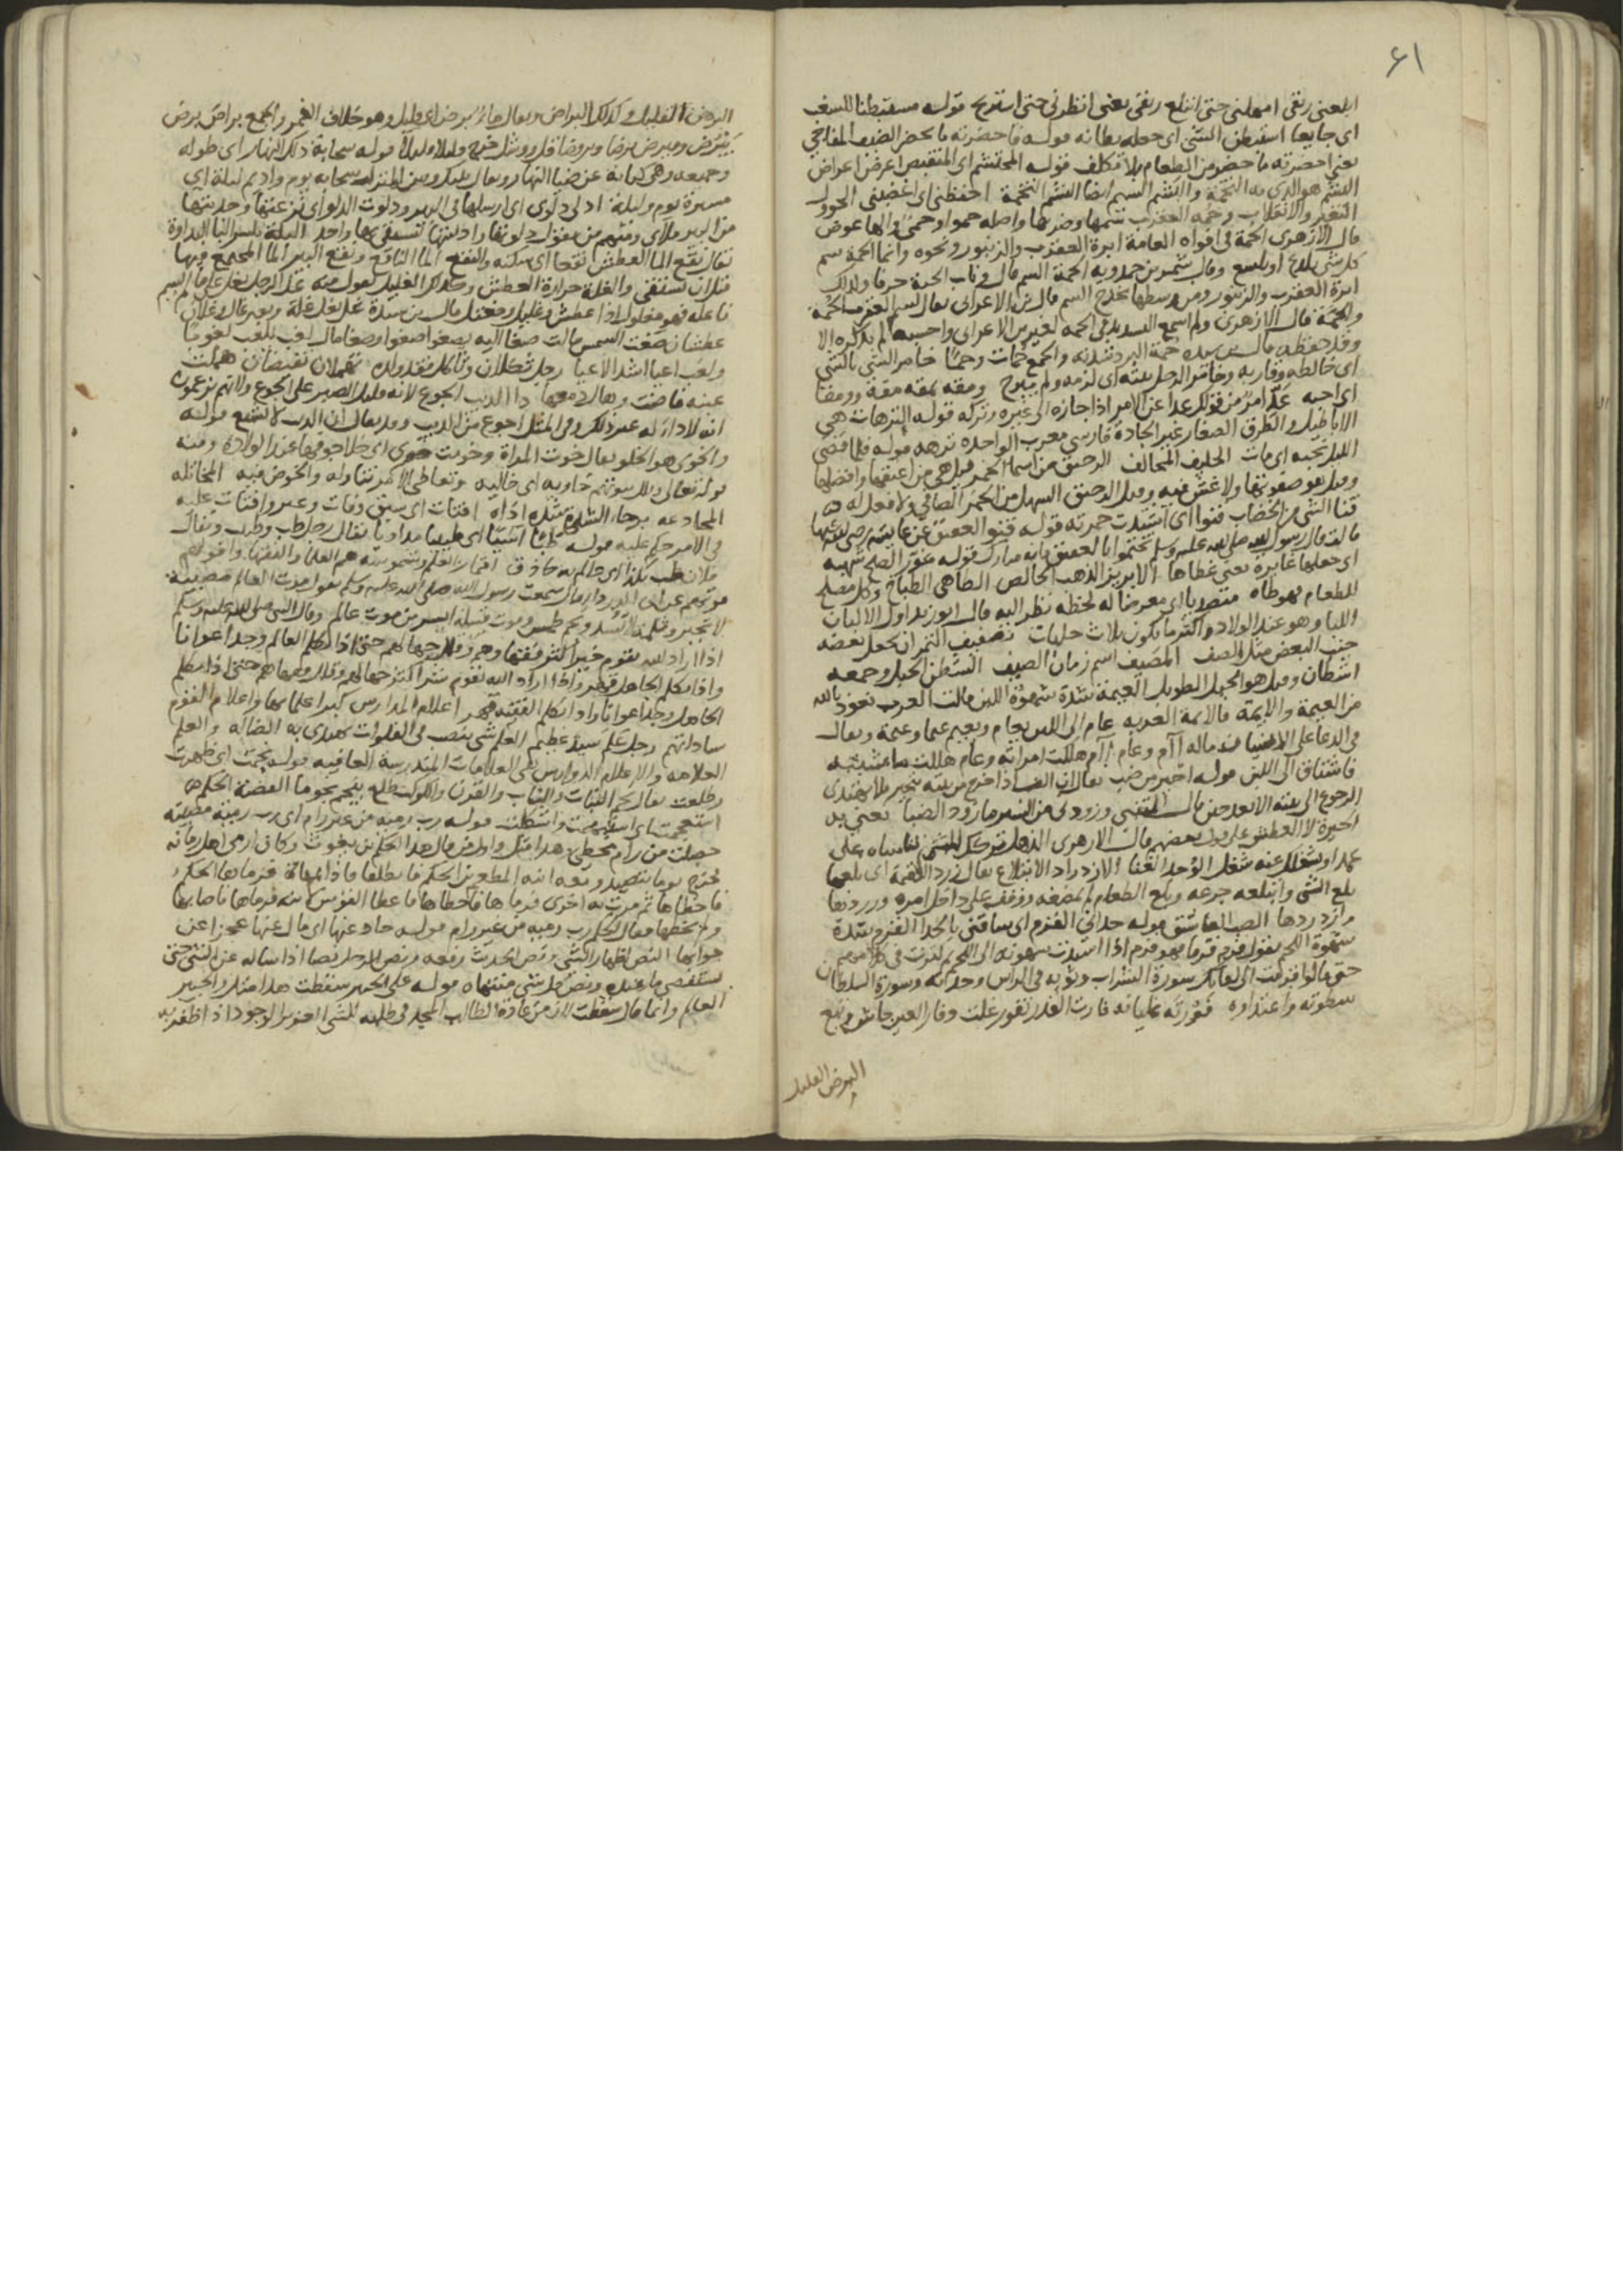 ٤١
ابلعني ريقي امهلني حتى ابتلع ريقي يعني انظرني حتى استريح قوله مستبطنا للسغب
اي جايعا استبطن الشي اي جعله بطانه قوله فاحضرته ما يحضر الضيف المفاجي
يعني احضرته ما حضر من الطعام بلا تكلف قوله المحتشم اي المنقبض اعرض اعراض
البشم هو الذي به التخمة والبشم السم ايضا البشم التخمة احفظني اي اغضبني الحوول
التغير والانقلاب وحمه العقرب سمها وضرها واصله حموا وحمي والها عوض
قال الازهري الحمة في افواه العامة ابرة العقرب والزنبور ونحوه وانما الحمة سم
كل شي يلدغ او يلسع وقال شمر بن حمدويه الحمة السم قال وناب الحية
ابرة العقرب والزنبور ومن وسطها يخرج السم قال بن الاعرابي يقال لسم العقرب الحمة
والحمة قال الازهري ولم اسمع التشديد في الحمه لغير بن الاعرابي واحسبه لم يذكره الا
وقد حفظه قال بن سيده حمة البرد شدته والجمع حمات خامر الشي بالشي
اي خالطه وقاربه وخامر الرجل بيته اي لزمه ولم يبرح ومقه يمقه مقة وومقا
اي احبه عدا امر من قولك عدا عن الامر اذا جازه الى غيره وتركه قوله الترهات هي
الاباطيل والطرق الصغار غير الجادة فارسي معرب الواحده ترهه قوله فلما قضى
الليل نحبه اي مات الحليف المحالف الرحيق من اسما الخمر قيل هي من اعتقها وافضلها
وقيل هو صفوتها ولا غش فيه وقيل الرحيق السهل من الخمر الصافي ولا فعل له
قنا الشي من الخضاب قنوا اي اشتدت حمرته قوله قنو العقيق عن عايشه رضي الله عنها
قالت قال رسول الله صلى الله عليه وسلم تختموا بالعقيق فانه مبارك قوله
اي جعلها غابرة يعني غطاها الابريز الذهب الخالص الطاهي الطباخ وكل مصلح
للطعام فهو طاه متصديا اي معرضا له لحظه نظر اليه قال ابو زيد اول الالبان
اللبا وهو عند الولاد واكثر ما يكون ثلاث حلبات تصفيف التمر ان يجعل بعضه
جنب البعض مثل الصف المصيف اسم زمان الصيف الشطن الحبل وجمعه
اشطان وقيل هو الحبل الطويل العيمة شدة شهوة اللبن قالت العرب نعوذ بالله
من العيمة والايمة فالايمة العزبه عام الى اللبن يعام ويعيم عيما وعيمة ويقال
في الدعا على الانسان ماله آم وعام آم هلكت امراته وعام هلكت ماشيته
فاشتاق الى اللبن قوله احير من ضب يقال ان الضب اذا خرج من بيته تحير فلا يهتدي
الرجوع الى بيته الا بعد حين قال المتنبي وزودني من السير ما زود الضبا يعني به
الحيرة لا العطش على قول بعضهم قال الازهري الذهل تركك الشي تناساه على
عمد او يشغلك عنه شغل الوجد الغنا الازدراد الابتلاع يقال زرد اللقمة اي بلعها
بلع الشي وابتلعه جرعه وبلع الطعام لم يمضغه ووقف على داخل امره وزردها
وازدردها الصب العاشق قوله حداني القرم اي ساقني بالحدا القرم شدة
شهوة اللحم تقول قرم قرما فهو قرم اذا اشتدت شهوته الى اللحم ثم كثرت في كلامهم
حتى قالوا قرمت الى لقايك سورة الشراب وثوبه في الراس وحدته وسورة السلطان
سطوته واعتداوه فورته غليانه فارت القدر تفور غلت وفار العين جاش ونبع
البرض القليل
البرض القليل وكذلك البراض ويقال ماء برض اي قليل وهو خلاف الغمر والجمع براض برض
يبرض ويبرض برضا وبروضا قل ووشل خرج قليلا قليلا قوله سحابة ذلك النهار اي طوله
وجميعه وهي كناية عن ضيا النهار ويقال بينك وبين المنزل سحابه يوم واديم ليلة اي
مسيرة يوم وليلة ادلى دلوي اي ارسلها في البير ودلوت الدلو اي نزعتها وجذبتها
من البير ملاي ومنهم من يقول دلوتها وادليتها البلة بكسر البا النداوة
يقال نقع الما العطش نقعا اي سكنه والنقع الما الناقع ونقع البير الما المجتمع فيها
قبل ان يستقى والغلة حرارة العطش وكذلك الغليل تقول منه غل الرجل يغل على ما لم يسم
فاعله فهو مغلول اذا عطش وغليل ومغتل قال بن سيدة غل يغل غلة وبعير غال وغلان
عطشان صغت الشمس مالت صغا اليه يصغو صغوا وصغا مال لغب يلغب لغوبا
ولغب اعيا اشد الاعيا رجل ثكلان وثاكل فقد ولده تهملان تفيضان هملت
عينه فاضت وهال دمعها دا الذيب الجوع لانه قليل الصبر على الجوع ولانهم يزعمون
انه لا داء له غير ذلك وفي المثل اجوع من الذيب وقد يقال ان الذيب لا يشبع قوله
والخوى هو الخلو يقال خوت المراة وخويت خوى اي خلا جوفها عند الولادة ومنه
قوله تعالى فتلك بيوتهم خاويه اي خاليه وتعاطى الامر تناوله والخوض فيه المخاتله
المخادعه برحاء الشدة شدة اذاه افتات اي سبق وفات وعبر وافتات عليه
في الامر حكم عليه قوله طبا آسيا اي طبيبا مداويا يقال رجل طب وطبيب ويقال
فلان طب بكذا اي عالم به حاذق اقمار العلم وشموسه هم العلما والفقها وافولهم
موتهم عن ابي الدرداء قال سمعت رسول الله صلى الله عليه وسلم يقول موت العالم مصيبة
لا تجبر وثلمة لا تسد ونجم طمس وموت قبيلة ايسر من موت عالم وقال النبي صلى الله عليه وسلم
اذا اراد الله بقوم خيرا كثر فقهاءهم وقلل جهالهم حتى اذا تكلم العالم وجد اعوانا
واذا تكلم الجاهل قهر واذا اراد الله بقوم شرا كثر جهالهم وقلل فقهاهم حتى اذا تكلم
الجاهل وجد اعوانا واذا تكلم الفقيه قهر اعلام المدارس كبراء علمايها واعلام القوم
ساداتهم رجل علم سيد عظيم العلم شي ينصب في الفلوات يهتدي به الضالة والعلم
العلامه والاعلام الدوارس هي العلامات المندرسة العافيه قوله نجمت اي ظهرت
وطلعت يقال نجم النبات والناب والقرن والكوكب طلع ينجم نجوما القضية الحكم
استعجمت اي استبهمت واشكلت قوله رب رمية من غير رام اي رب رمية مصيبة
حصلت من رام مخطي هذا مثل واول من قال هذا الحكم بن يغوث وكان ارمى اهل زمانه
فخرج يوما يتصيد ومعه ابنه المطعم بن الحكم فانطلقا فاذا بمهاة فرماها الحكم
فاخطاها ثم مرت به اخرى فرماها فاخطاها فاعطا القوس ابنه فرماها فاصابها
ولم يخطها فقال الحكم رب رمية من غير رام قوله حاد عنها اي مال عنها عجزا عن
جوابها النص اظهار الشي ونص الحديث رفعه ونص الرجل نصا اذا ساله عن الشي حتى
يستقصي ما عنده ونص كل شي منتهاه قوله على الخبير سقطت هذا مثل والخبير
العالم وانما قال سقطت لان من عادة الطالب المجد في طلبه للشي العزيز الوجود اذا ظفر به